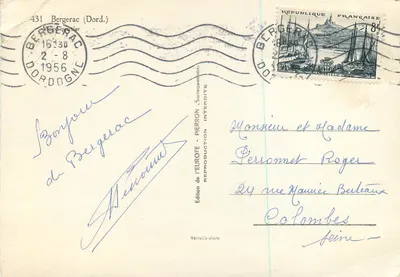 431 Bergerac (Dord.)
BERGERAC
16H30
2-8
1956
DORDOGNE
BERGERAC
DORDOGNE
REPUBLIQUE FRANÇAISE
8F
Bonjour
de Bergerac
Edition de l'EUROPE - PIERRON
REPRODUCTION INTERDITE
Monsieur et Madame
Perronnet Roger
24 rue Maurice Berteaux
Colombes
Seine